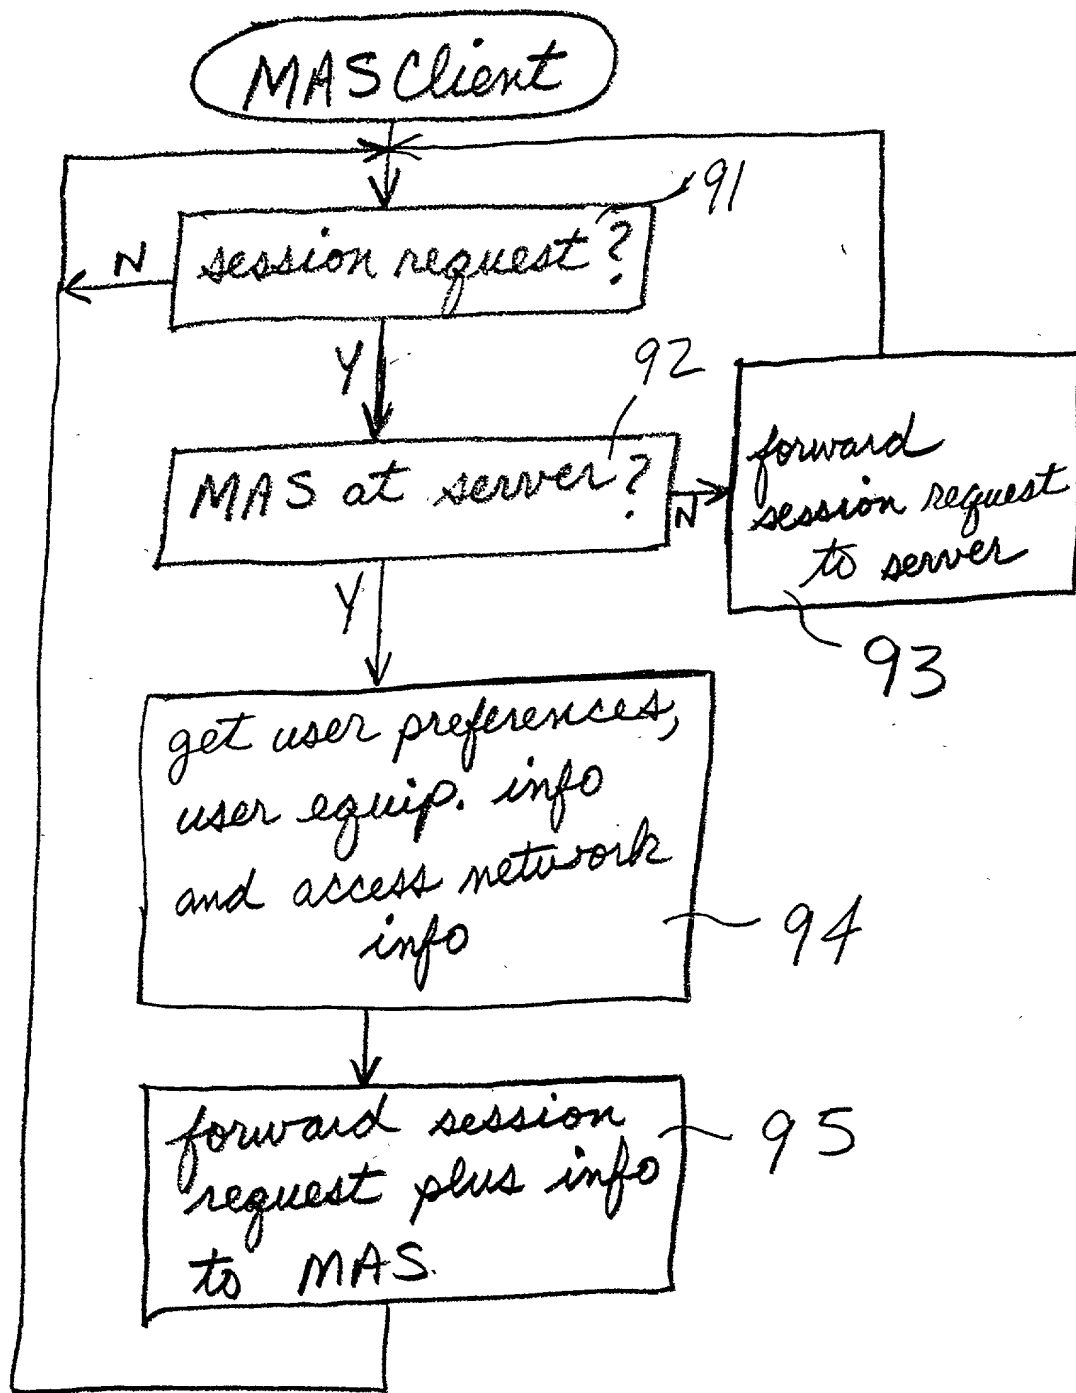 MAS Client
91
session request?
N
Y
92
MAS at server?
N
forward
session request
to server
93
Y
get user preferences,
user equip. info
and access network
info
94
forward session
request plus info
to MAS.
95